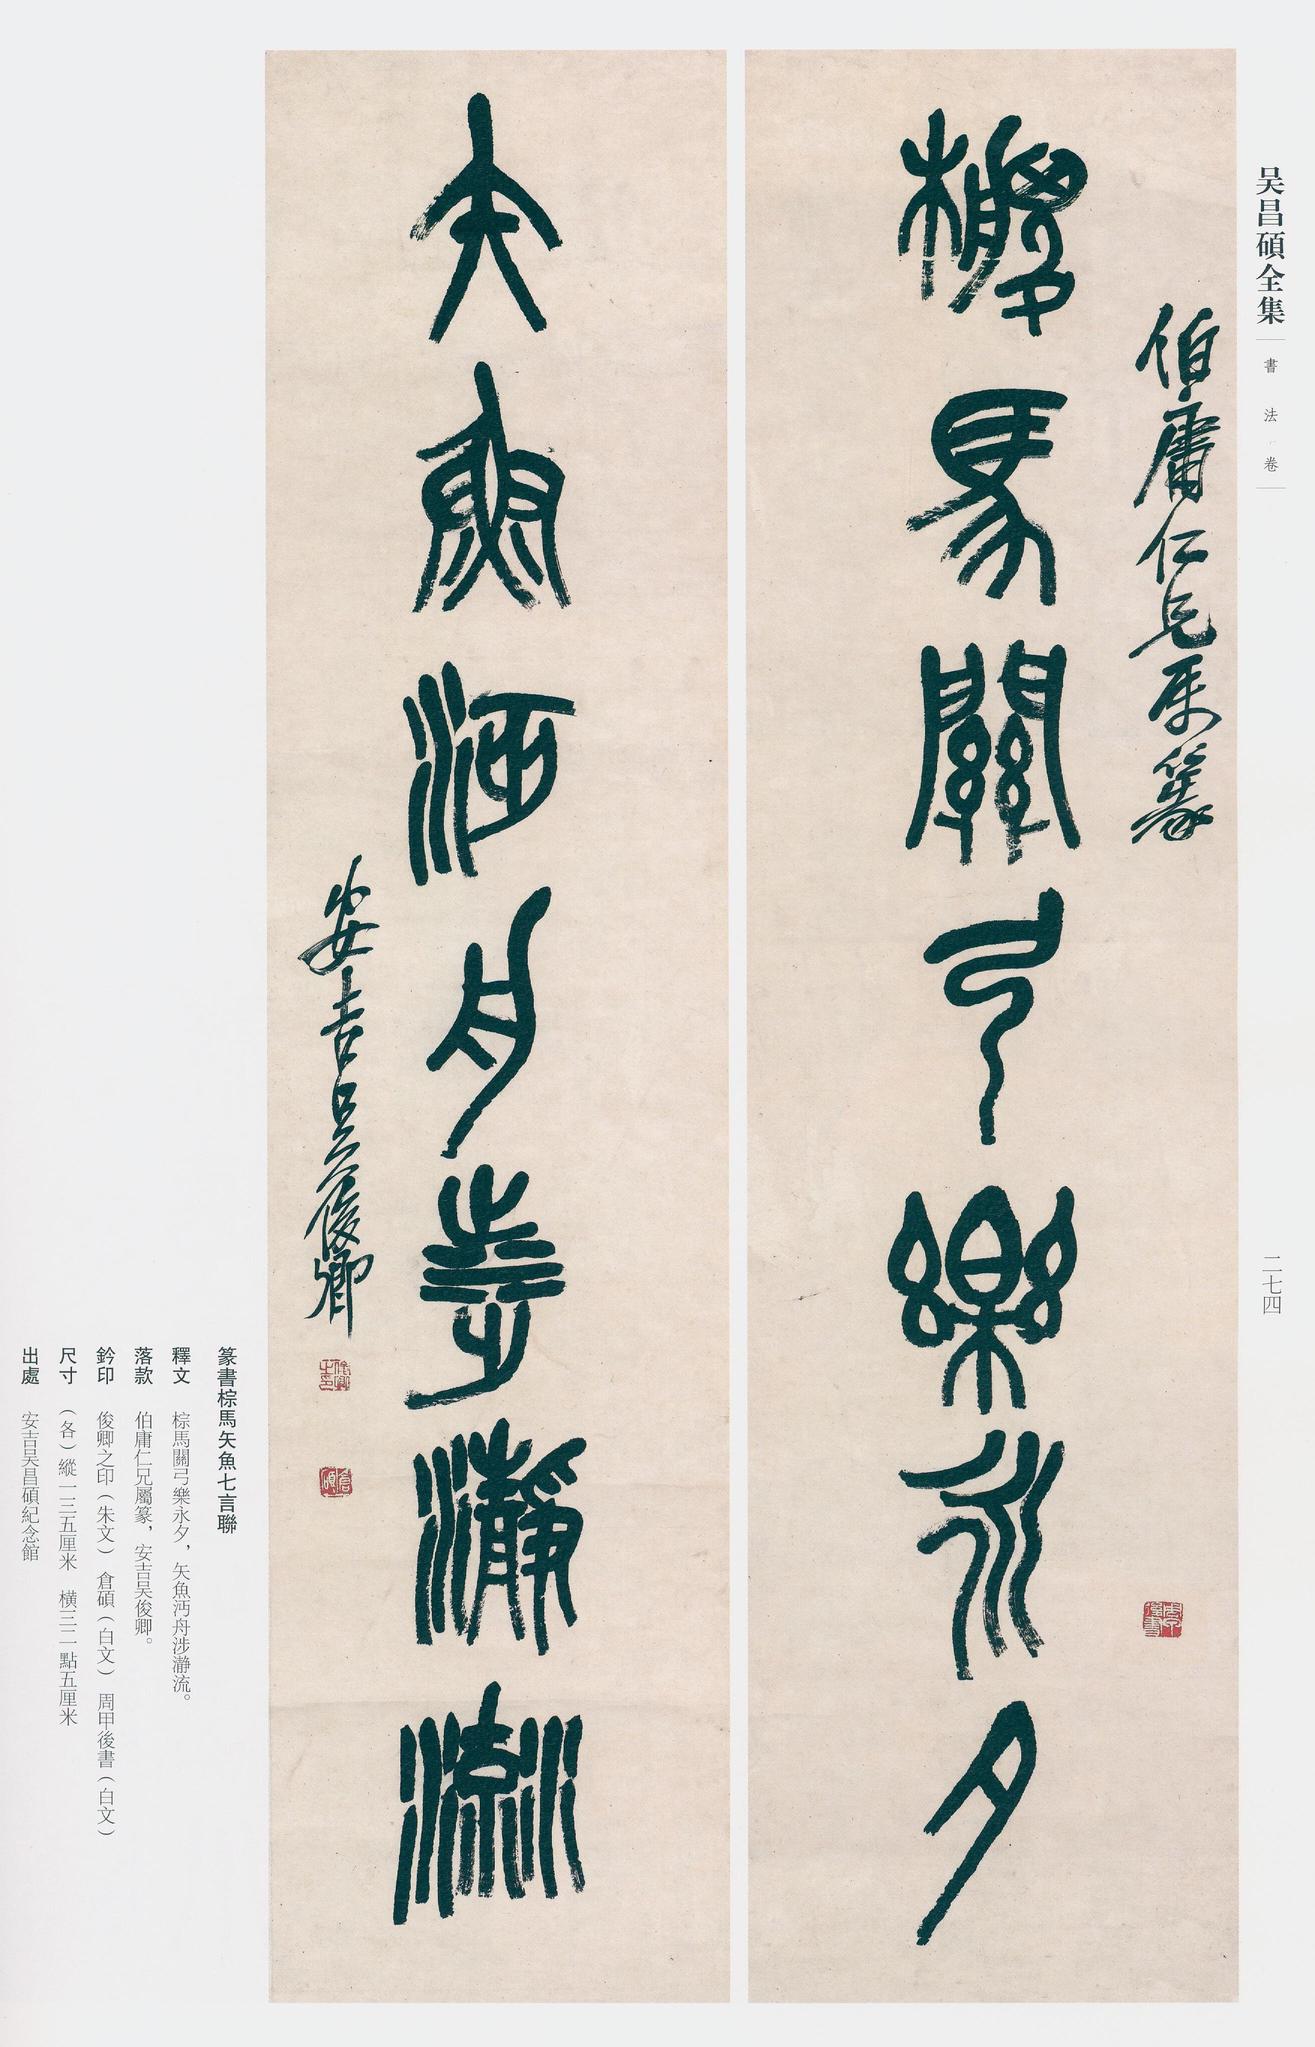 吴昌碩全集
書法卷
二七四
伯庸仁兄属篆
棕馬關弓樂永夕
矢魚沔舟涉瀞流
安吉吴俊卿
俊卿之印
倉碩
篆書棕馬矢魚七言聯
釋文 棕馬關弓樂永夕，矢魚沔舟涉瀞流。
落款 伯庸仁兄屬篆，安吉吴俊卿。
鈐印 俊卿之印（朱文） 倉碩（白文） 周甲後書（白文）
尺寸 （各）縱一三五厘米 橫三二點五厘米
出處 安吉吴昌碩紀念館